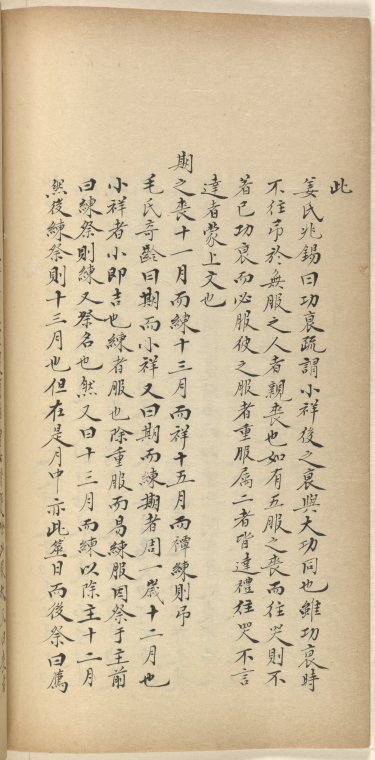 此
姜氏兆錫曰功衰疏謂小祥後之衰與大功同也雖功衰時
不往弔於無服之人者親喪也如有五服之喪而往哭則不
著已功衰而必服使之服者重服属二者皆達禮往哭不言
達者蒙上文也
期之喪十一月而練十三月而祥十五月而禫練則弔
毛氏竒齡曰期而小祥又曰期而練期者周一歲十二月也
小祥者小即吉也練者服也除重服而易練服因祭于主前
曰練祭則練又祭名也然又曰十三月而練以除主十二月
然後練祭則十三月也但在是月中亦此筮日而後祭曰薦